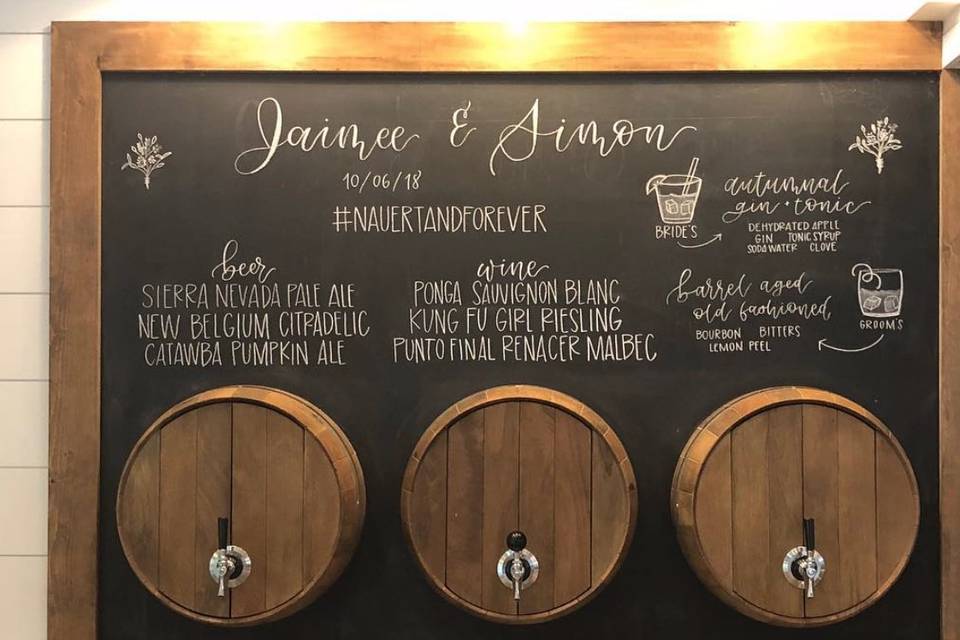 Jaimee & Simon
10/06/18
#NAUERTANDFOREVER
beer
SIERRA NEVADA PALE ALE
NEW BELGIUM CITRADELIC
CATAWBA PUMPKIN ALE
wine
PONGA SAUVIGNON BLANC
KUNG FU GIRL RIESLING
PUNTO FINAL RENACER MALBEC
BRIDE'S
autumnal
gin + tonic
DEHYDRATED APPLE
GIN TONIC SYRUP
SODA WATER CLOVE
barrel aged
old fashioned
BOURBON BITTERS
LEMON PEEL
GROOM'S